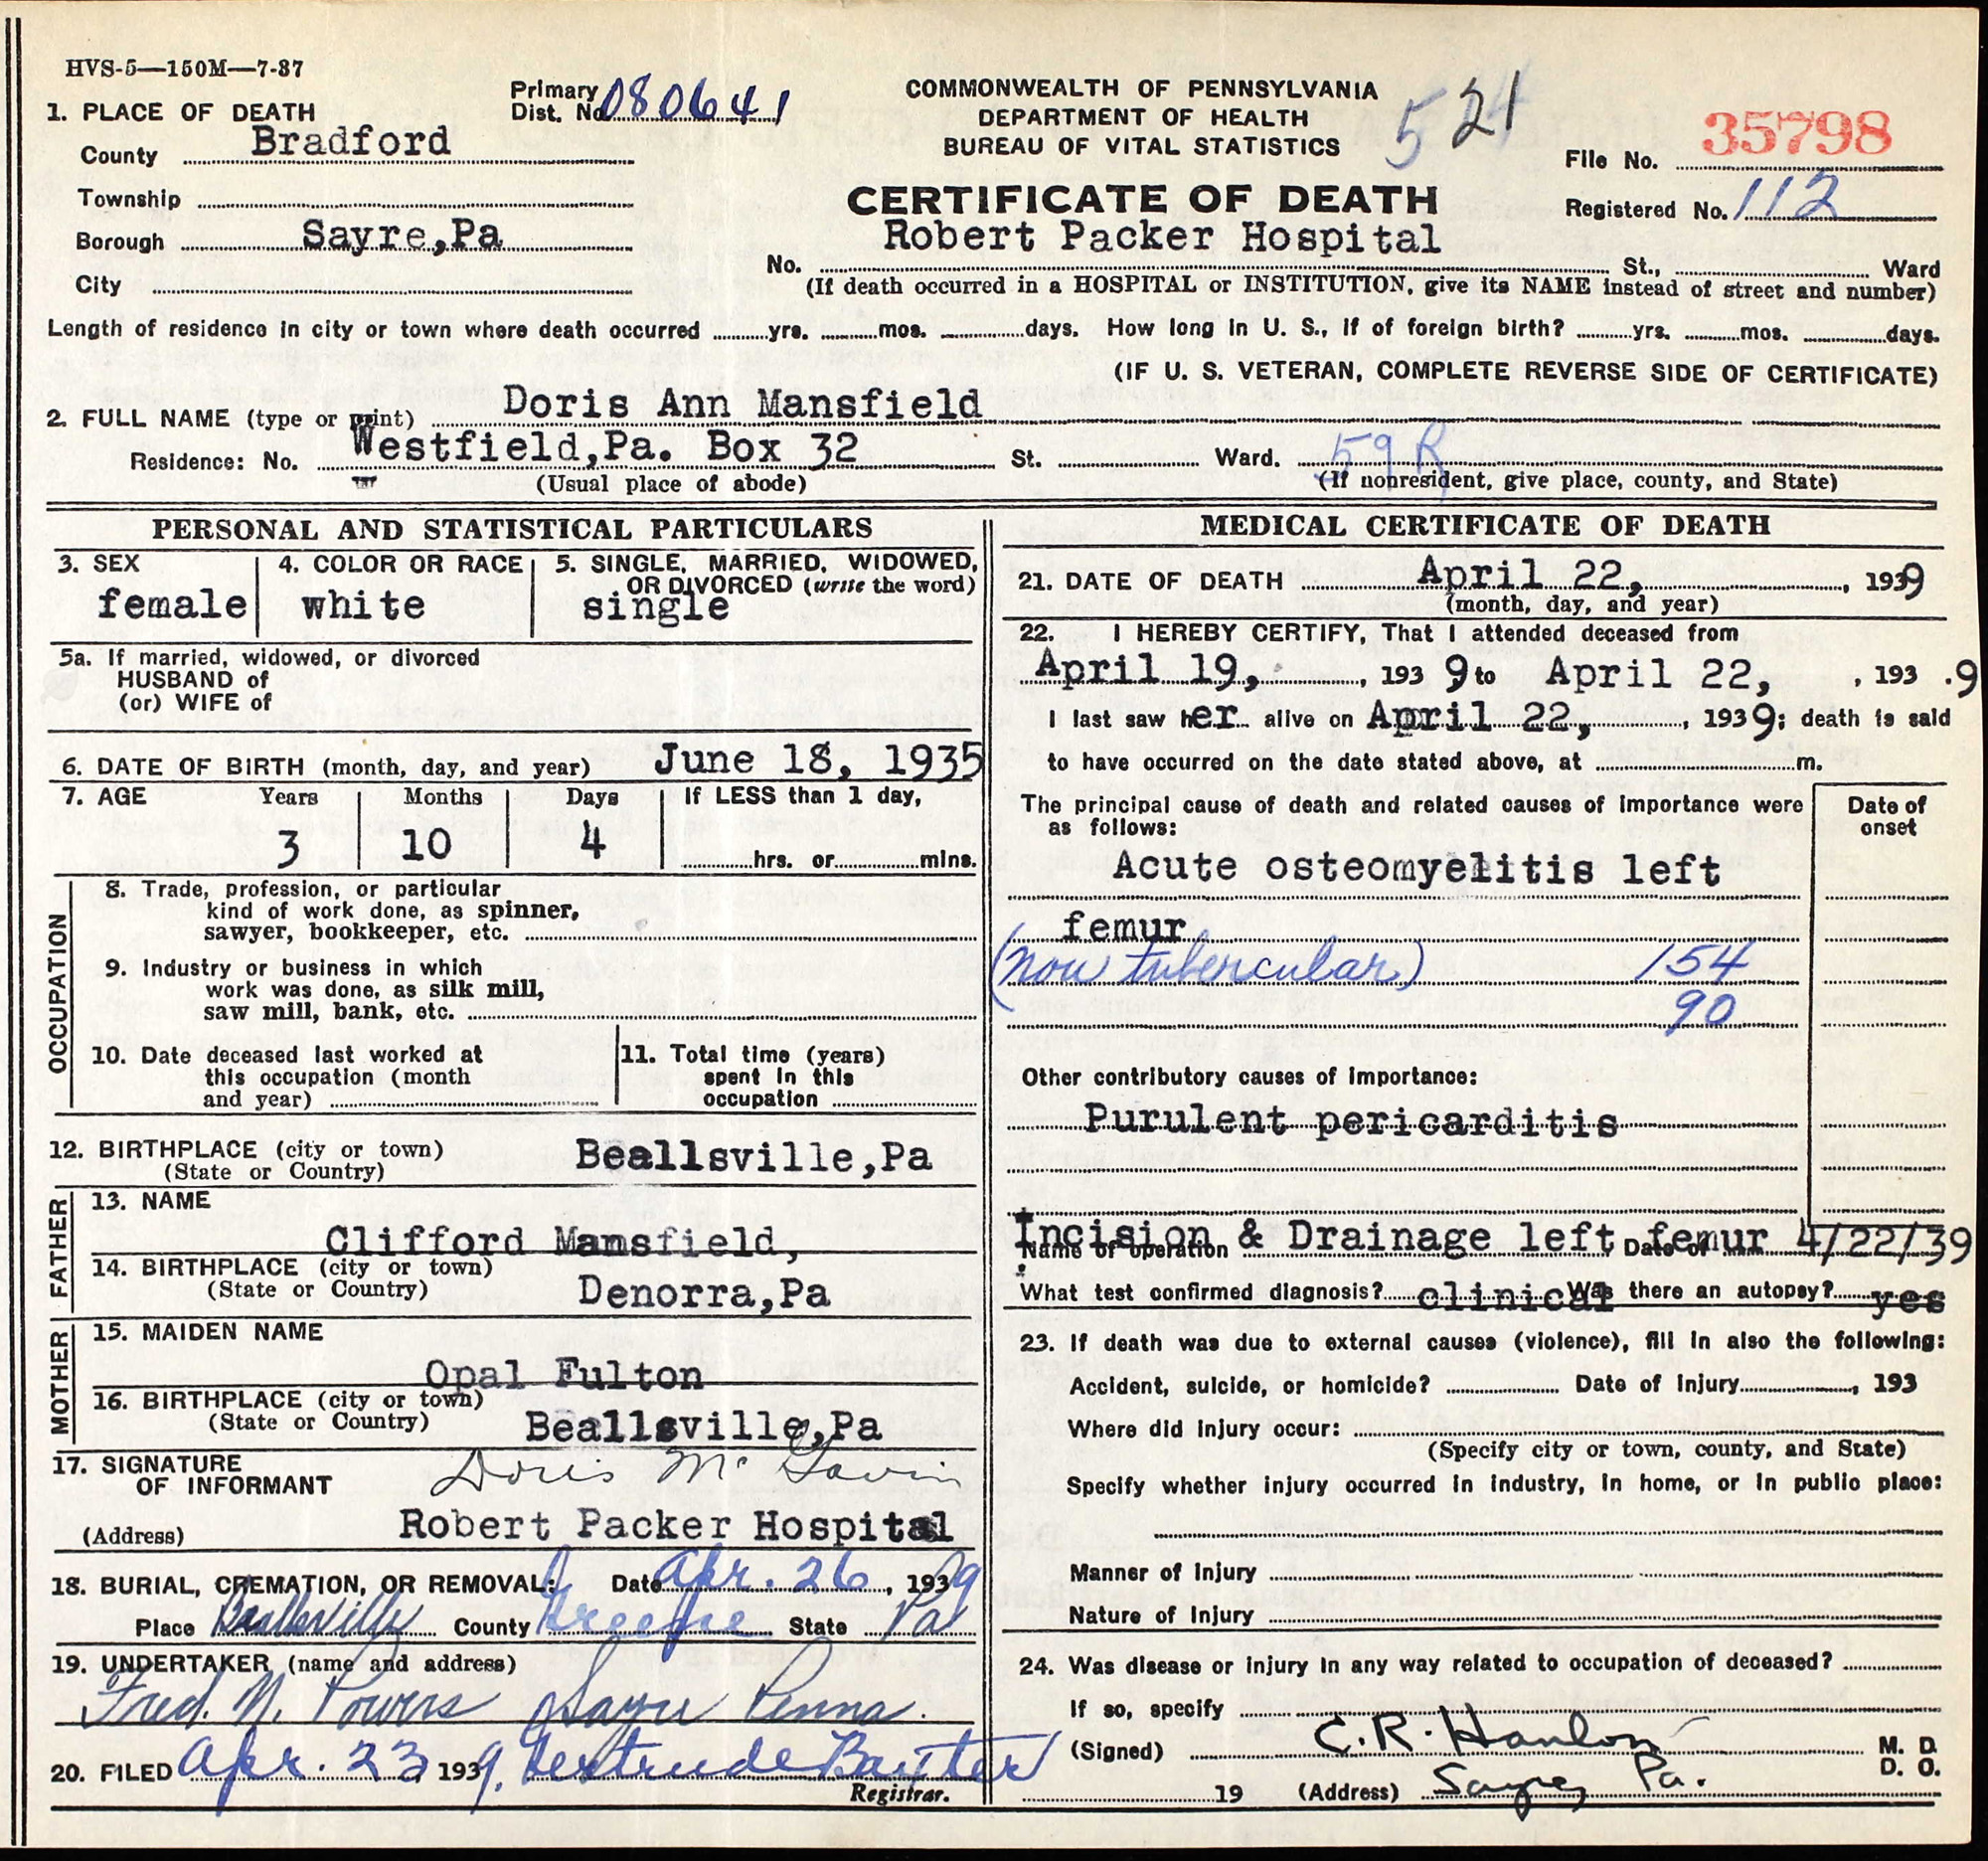 HVS-5—150M—7-37
Primary Dist. No. 080641
COMMONWEALTH OF PENNSYLVANIA
DEPARTMENT OF HEALTH
BUREAU OF VITAL STATISTICS
521
File No. 35798
Registered No. 112
1. PLACE OF DEATH
County Bradford
Township
Borough Sayre,Pa
City
CERTIFICATE OF DEATH
Robert Packer Hospital
No. St., Ward
(If death occurred in a HOSPITAL or INSTITUTION, give its NAME instead of street and number)
Length of residence in city or town where death occurred yrs. mos. days. How long in U. S., if of foreign birth? yrs. mos. days.
(IF U. S. VETERAN, COMPLETE REVERSE SIDE OF CERTIFICATE)
2. FULL NAME (type or print) Doris Ann Mansfield
Residence: No. Westfield,Pa. Box 32 St. Ward. 59 R
(Usual place of abode) (If nonresident, give place, county, and State)
PERSONAL AND STATISTICAL PARTICULARS
3. SEX female
4. COLOR OR RACE white
5. SINGLE, MARRIED, WIDOWED, OR DIVORCED (write the word) single
5a. If married, widowed, or divorced
HUSBAND of
(or) WIFE of
6. DATE OF BIRTH (month, day, and year) June 18, 1935
7. AGE Years Months Days If LESS than 1 day,
3 10 4 hrs. or mins.
OCCUPATION
8. Trade, profession, or particular
kind of work done, as spinner,
sawyer, bookkeeper, etc.
9. Industry or business in which
work was done, as silk mill,
saw mill, bank, etc.
10. Date deceased last worked at
this occupation (month
and year)
11. Total time (years)
spent in this
occupation
12. BIRTHPLACE (city or town) Beallsville,Pa
(State or Country)
FATHER
13. NAME
Clifford Mansfield,
14. BIRTHPLACE (city or town)
(State or Country) Denorra,Pa
MOTHER
15. MAIDEN NAME
Opal Fulton
16. BIRTHPLACE (city or town)
(State or Country) Beallsville,Pa
17. SIGNATURE
OF INFORMANT Doris Mc Gavin
(Address) Robert Packer Hospital
18. BURIAL, CREMATION, OR REMOVAL: Date Apr. 26, 1939
Place Beallsville County Greene State Pa
19. UNDERTAKER (name and address)
Fred. N. Powers Sayre Penna.
20. FILED Apr. 23 1939. Gertrude Baxter
Registrar.
MEDICAL CERTIFICATE OF DEATH
21. DATE OF DEATH April 22, 1939
(month, day, and year)
22. I HEREBY CERTIFY, That I attended deceased from
April 19, , 193 9 to April 22, , 193 .9
I last saw her alive on April 22, , 1939; death is said
to have occurred on the date stated above, at m.
The principal cause of death and related causes of importance were
as follows:
Date of
onset
Acute osteomyelitis left
femur
(non tubercular) 154
90
Other contributory causes of importance:
Purulent pericarditis
Incision & Drainage left femur 4/22/39
Name of operation Date of
What test confirmed diagnosis? clinical Was there an autopsy? yes
23. If death was due to external causes (violence), fill in also the following:
Accident, suicide, or homicide? Date of injury , 193
Where did injury occur:
(Specify city or town, county, and State)
Specify whether injury occurred in industry, in home, or in public place:
Manner of injury
Nature of injury
24. Was disease or injury in any way related to occupation of deceased?
If so, specify
(Signed) C.R. Hanlon M. D.
D. O.
19 (Address) Sayre, Pa.